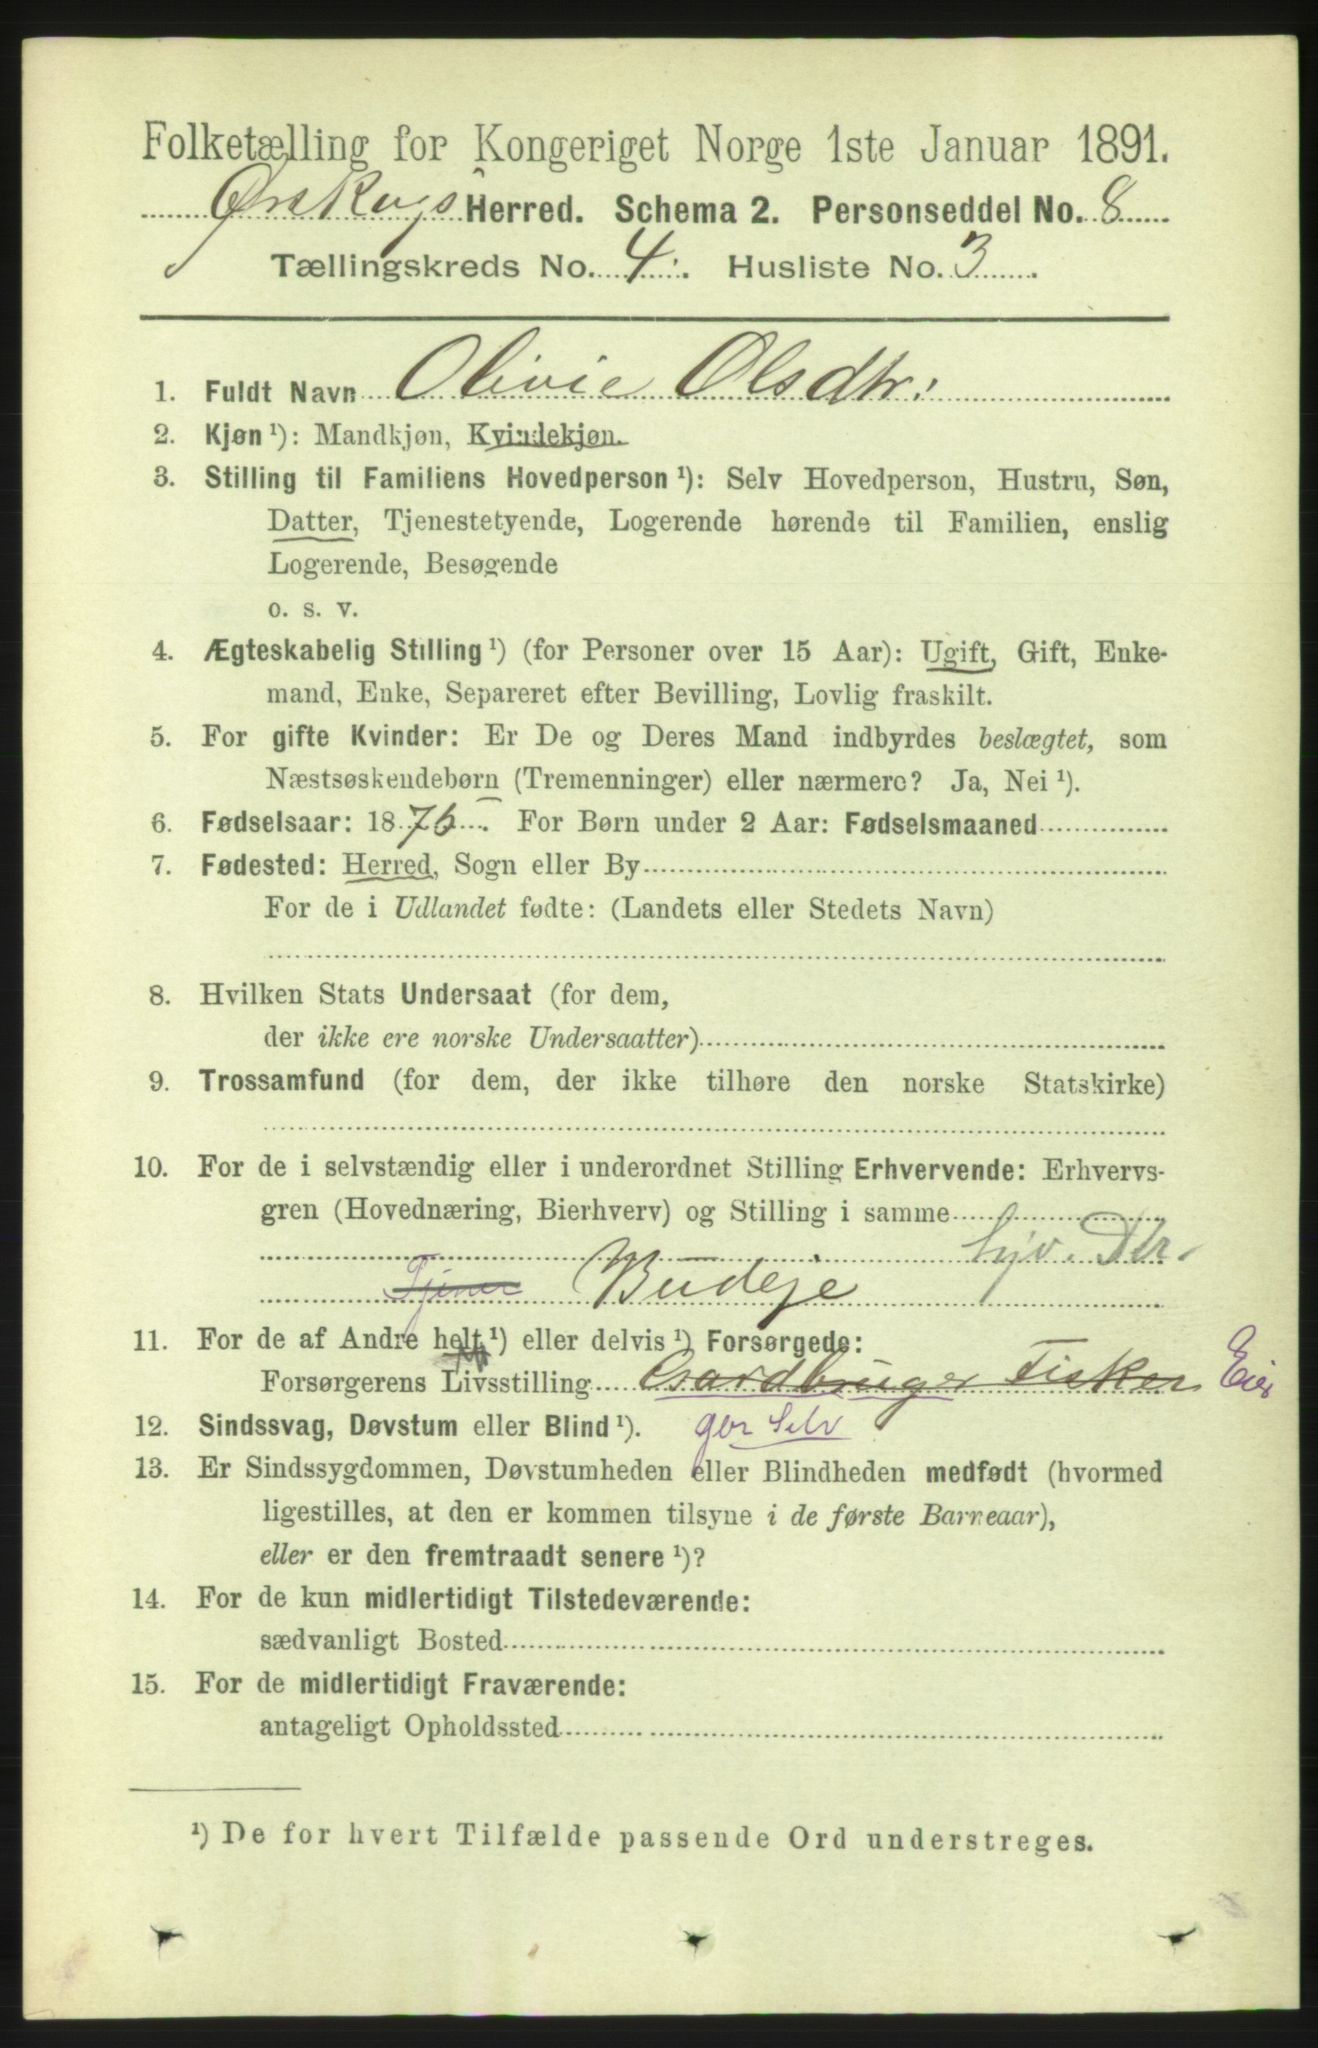 Folketælling for Kongeriget Norge 1ste Januar 1891.
Ørskogs Herred. Schema 2. Personseddel No. 8
Tællingskreds No. 4. Husliste No. 3.
1. Fuldt Navn Olivie Olsdtr:
2. Kjøn ¹): Mandkjøn, Kvindekjøn.
3. Stilling til Familiens Hovedperson ¹): Selv Hovedperson, Hustru, Søn,
Datter, Tjenestetyende, Logerende hørende til Familien, enslig
Logerende, Besøgende
o. s. v.
4. Ægteskabelig Stilling ¹) (for Personer over 15 Aar): Ugift, Gift, Enke-
mand, Enke, Separeret efter Bevilling, Lovlig fraskilt.
5. For gifte Kvinder: Er De og Deres Mand indbyrdes beslægtet, som
Næstsøskendebørn (Tremenninger) eller nærmere? Ja, Nei ¹).
6. Fødselsaar: 1876. For Børn under 2 Aar: Fødselsmaaned
7. Fødested: Herred, Sogn eller By
For de i Udlandet fødte: (Landets eller Stedets Navn)
8. Hvilken Stats Undersaat (for dem,
der ikke ere norske Undersaatter)
9. Trossamfund (for dem, der ikke tilhøre den norske Statskirke)
10. For de i selvstændig eller i underordnet Stilling Erhvervende: Erhvervs-
gren (Hovednæring, Bierhverv) og Stilling i samme
hjv. Dtr.
Tjener Budeje
11. For de af Andre helt ¹) eller delvis ¹) Forsørgede:
Forsørgerens Livsstilling Gardbruger Fisker Eier
12. Sindssvag, Døvstum eller Blind ¹). gbr Selv
13. Er Sindssygdommen, Døvstumheden eller Blindheden medfødt (hvormed
ligestilles, at den er kommen tilsyne i de første Barneaar),
eller er den fremtraadt senere ¹)?
14. For de kun midlertidigt Tilstedeværende:
sædvanligt Bosted
15. For de midlertidigt Fraværende:
antageligt Opholdssted
¹) De for hvert Tilfælde passende Ord understreges.